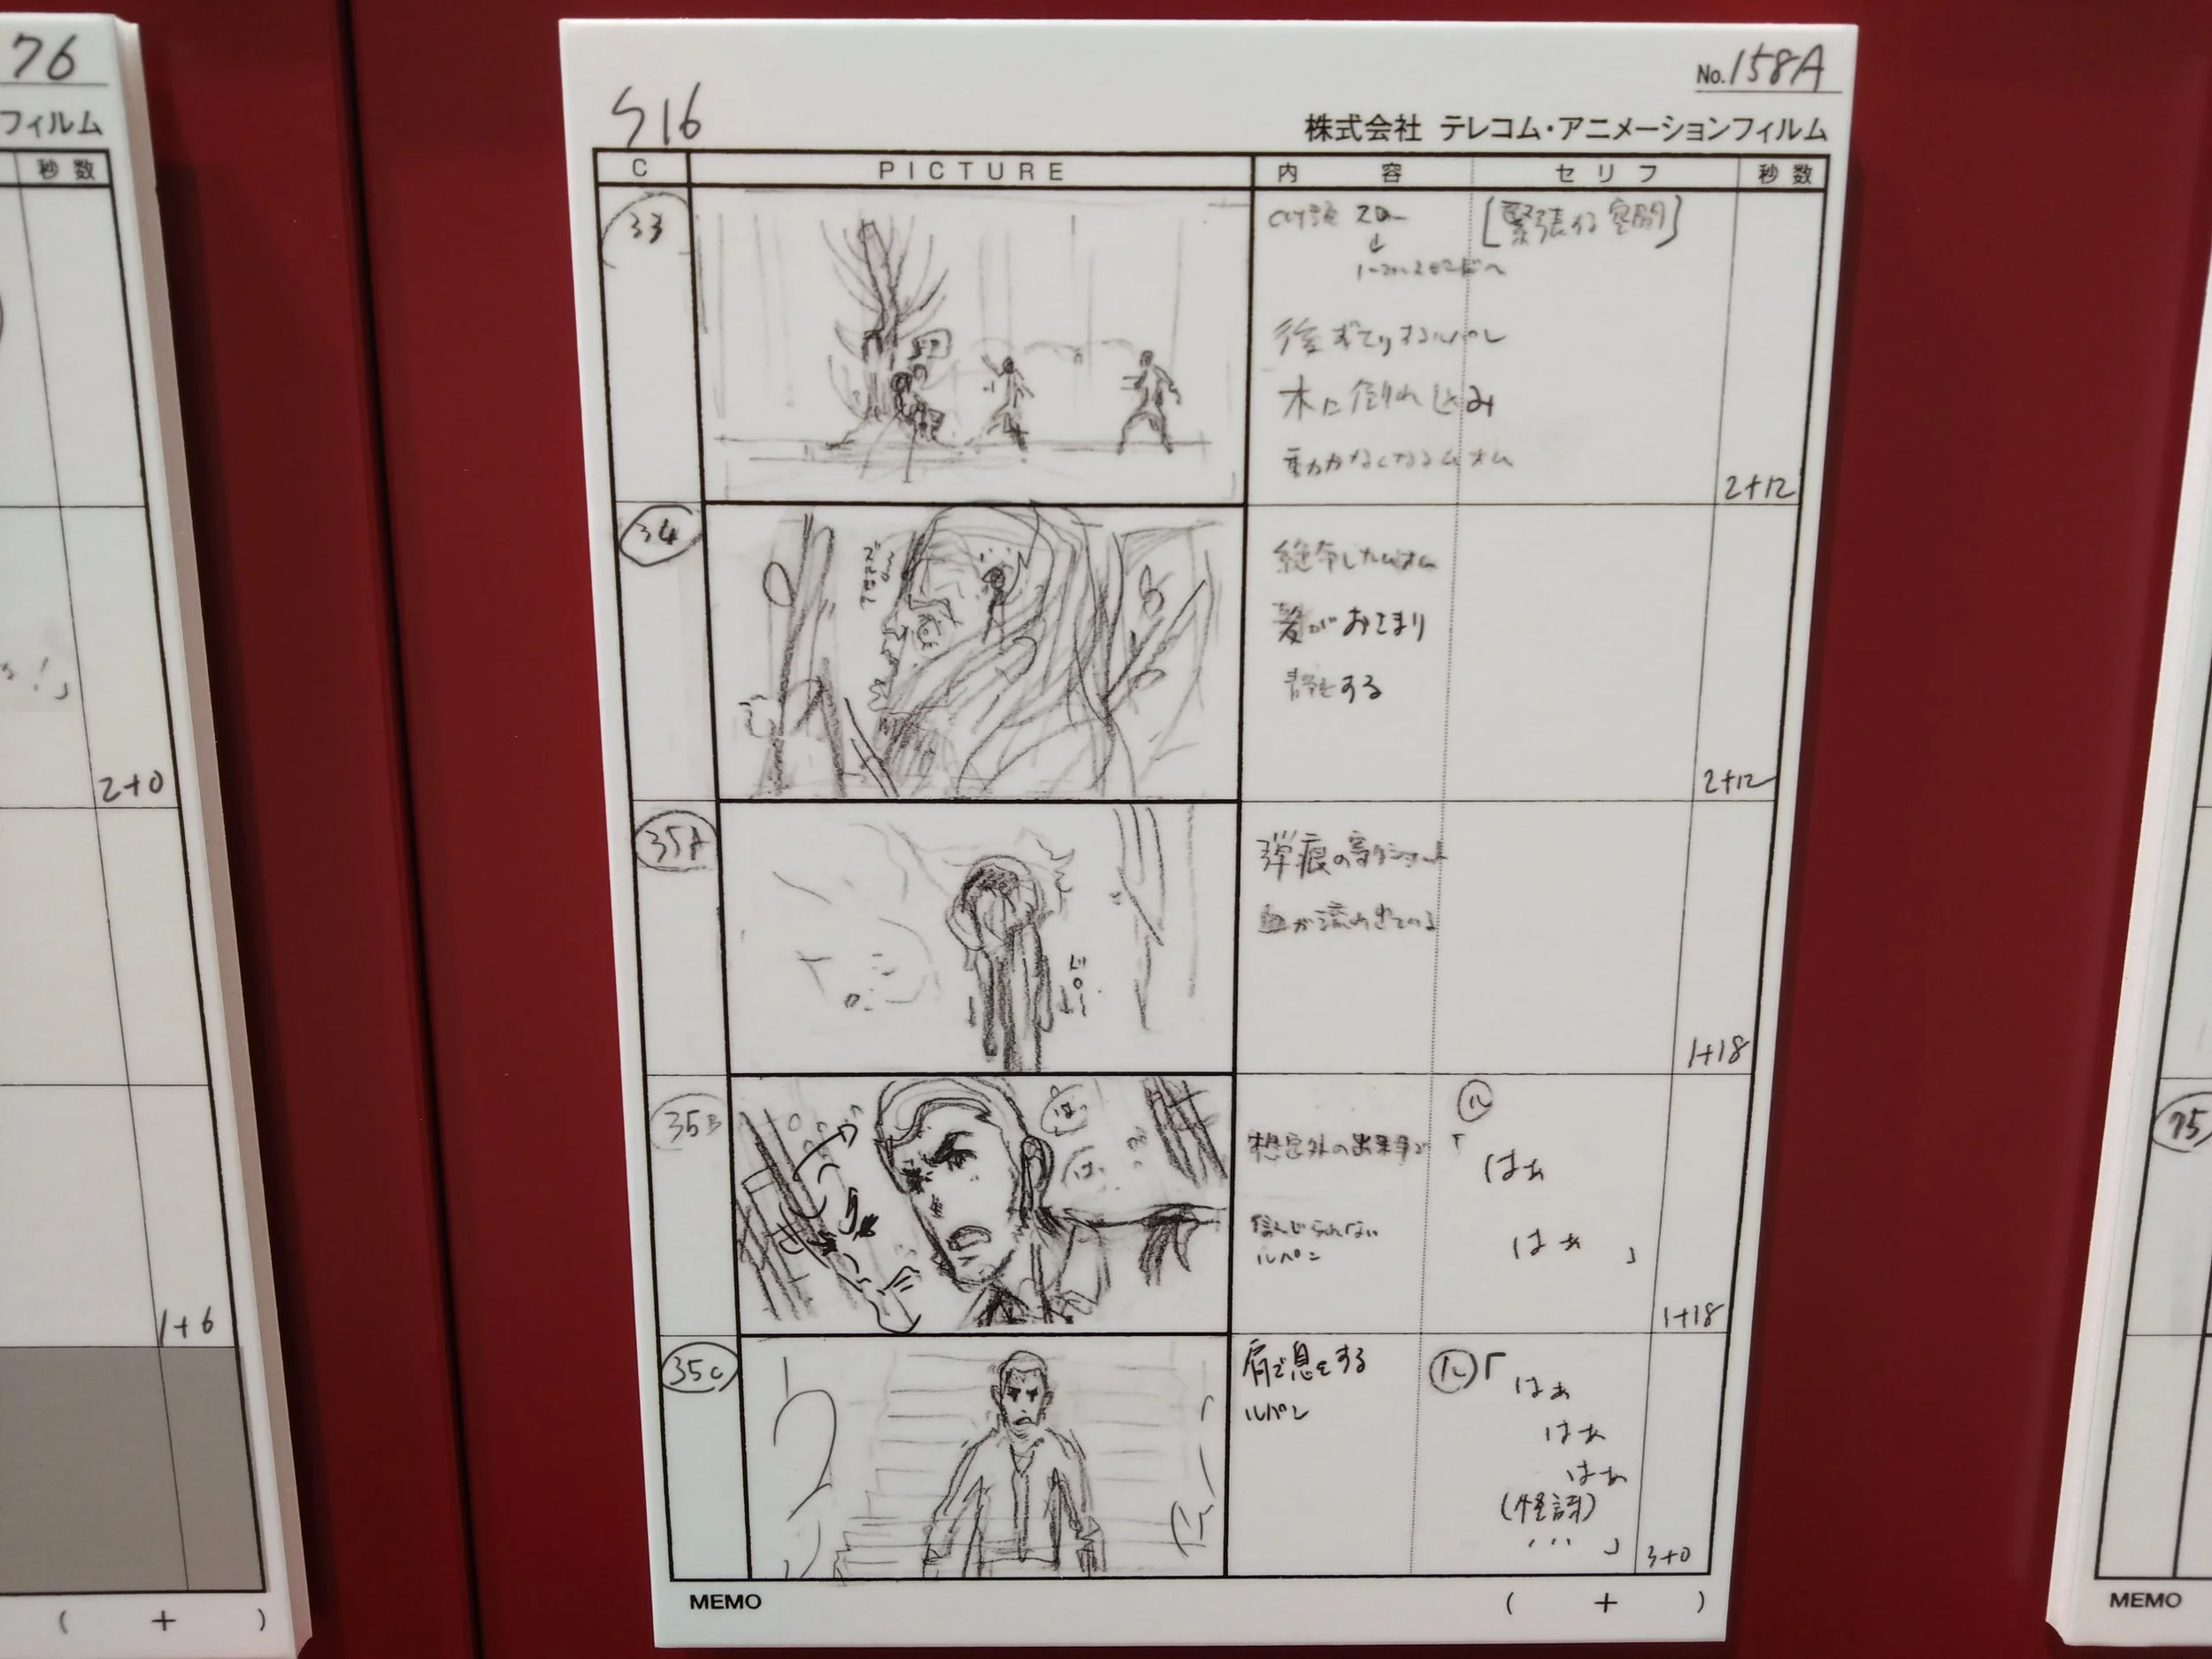 76
フィルム
秒数
!」
2+0
1+6
( + )
S16
No.158A
株式会社 テレコム・アニメーションフィルム
C PICTURE 内容 セリフ 秒数
33
スロー
↓
[緊張する空間]
後ずさりするルパン
木に倒れ込み
動かなくなるムオム
2+12
34
絶命したムオム
髪がおさまり
静止する
2+12
35A
弾痕の寄りショット
血が流れ出ている
1+18
35B
は
は
想定外の出来事で
信じられない
ルパン
ル
「
はぁ
はぁ 」
1+18
35C
肩で息をする
ルパン
ル「
はぁ
はぁ
はぁ
(怪訝)
・・・ 」
3+0
MEMO ( + )
75
MEMO